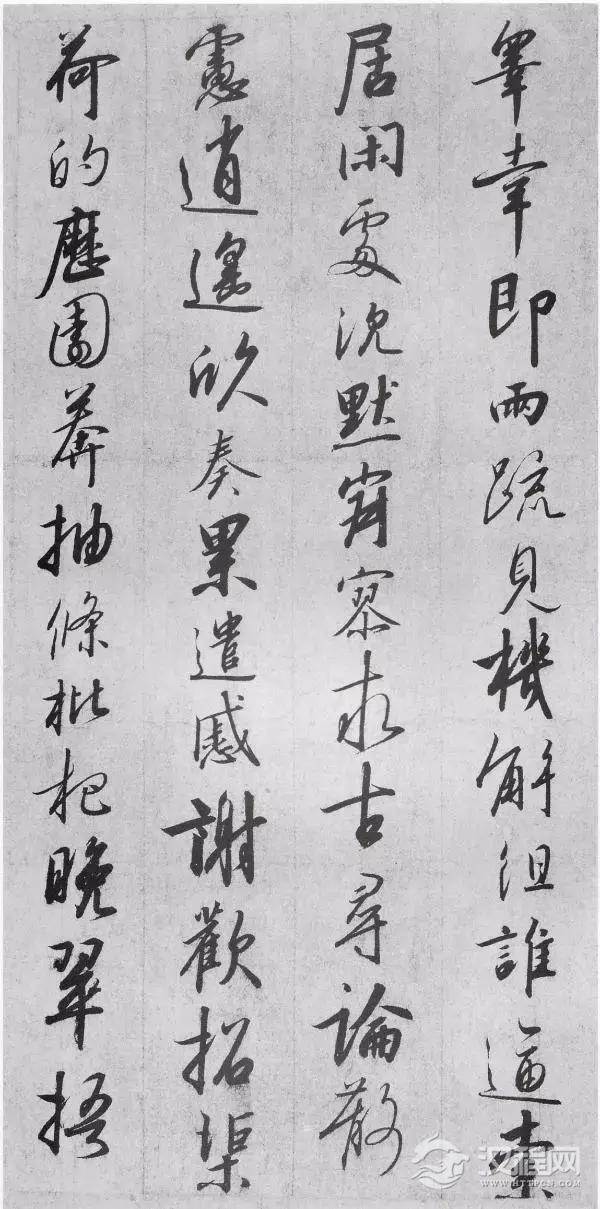 皋幸即兩疏見機解組誰逼索
居閑處沈默寂寥求古尋論散
慮逍遙欣奏累遣慼謝歡招渠
荷的歷園莽抽條枇杷晚翠梧
汉程网
WWW.HTTPCN.COM